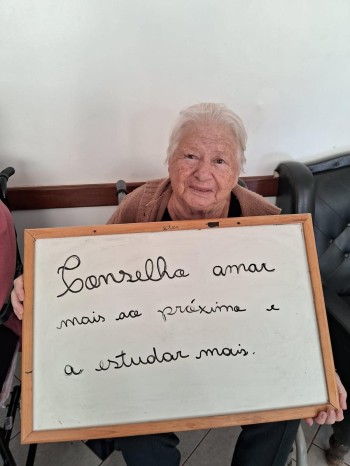 Conselho amar
mais ao próximo e
a estudar mais.